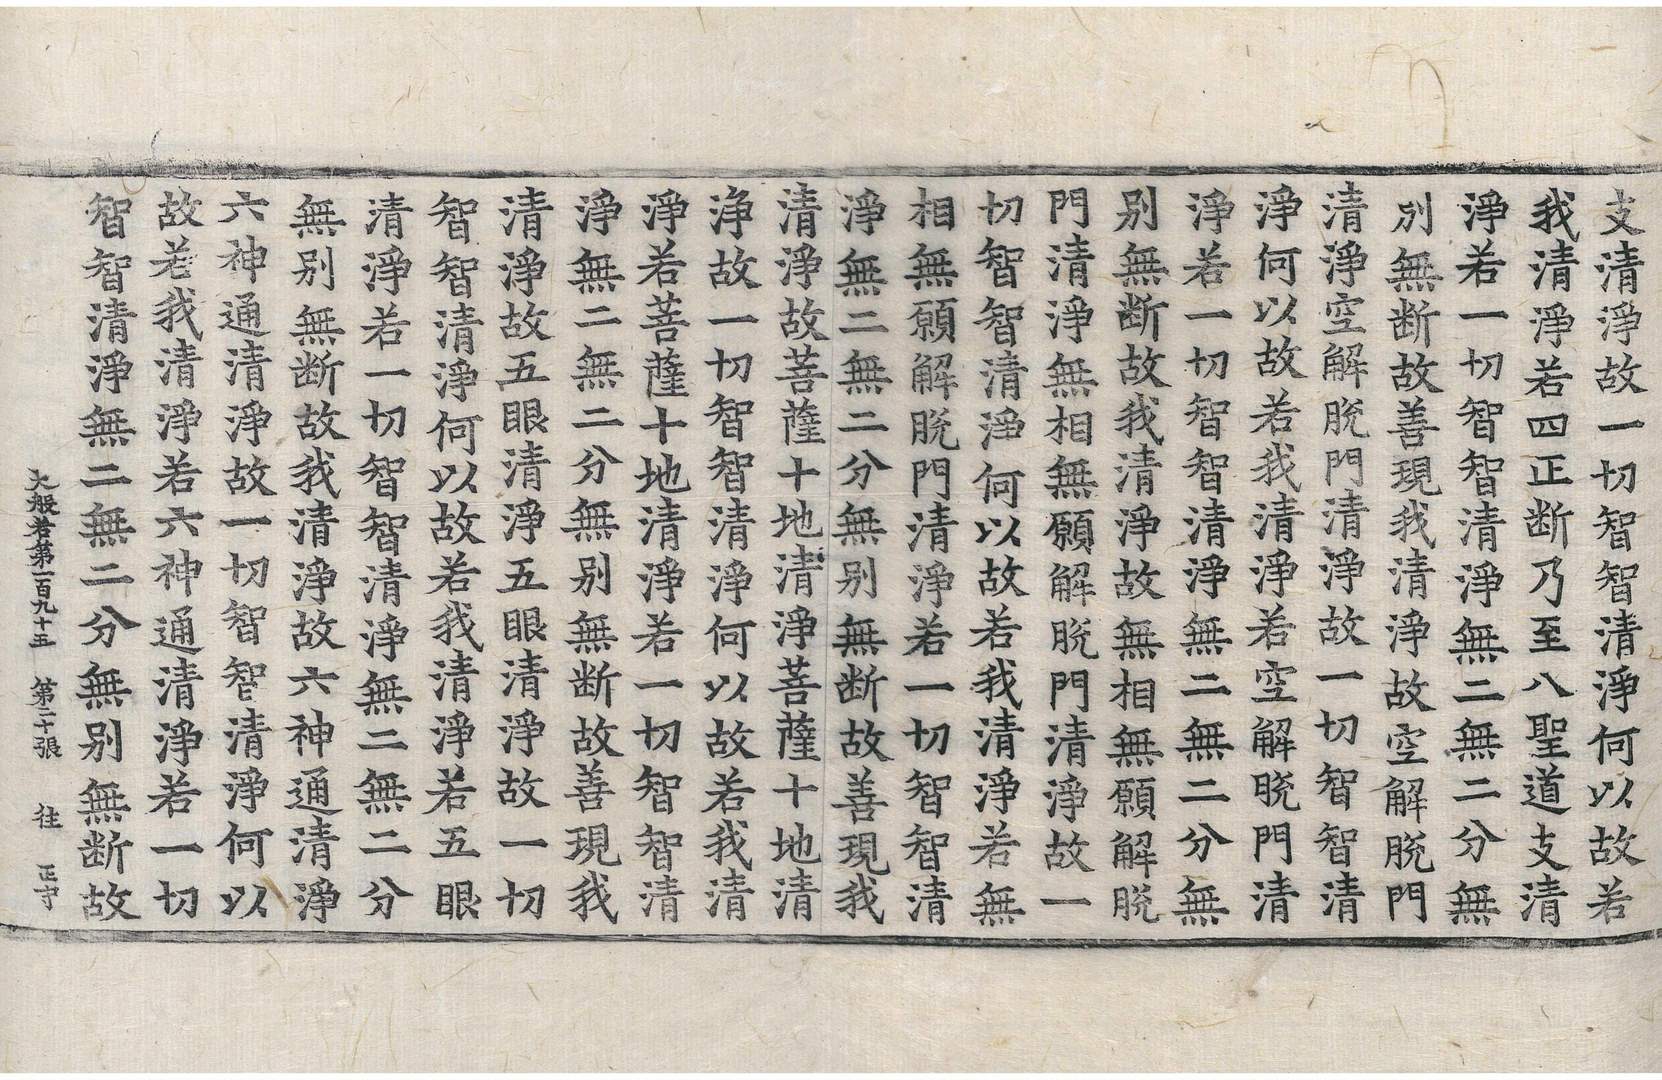 支清淨故一切智智清淨何以故若
我清淨若四正断乃至八聖道支清
淨若一切智智清淨無二無二分無
别無断故善現我清淨故空解脫門
清淨空解脫門清淨故一切智智清
淨何以故若我清淨若空解脫門清
淨若一切智智清淨無二無二分無
别無断故我清淨故無相無願解脫
門清淨無相無願解脫門清淨故一
切智智清淨何以故若我清淨若無
相無願解脫門清淨若一切智智清
淨無二無二分無别無断故善現我
清淨故菩薩十地清淨菩薩十地清
净故一切智智清淨何以故若我清
淨若菩薩十地清淨若一切智智清
淨無二無二分無别無断故善現我
清淨故五眼清淨五眼清淨故一切
智智清淨何以故若我清淨若五眼
清淨若一切智智清淨無二無二分
無别無断故我清淨故六神通清淨
六神通清淨故一切智智清淨何以
故若我清淨若六神通清淨若一切
智智清淨無二無二分無别無断故
大般若第一百九十五 第二十張 往 正守